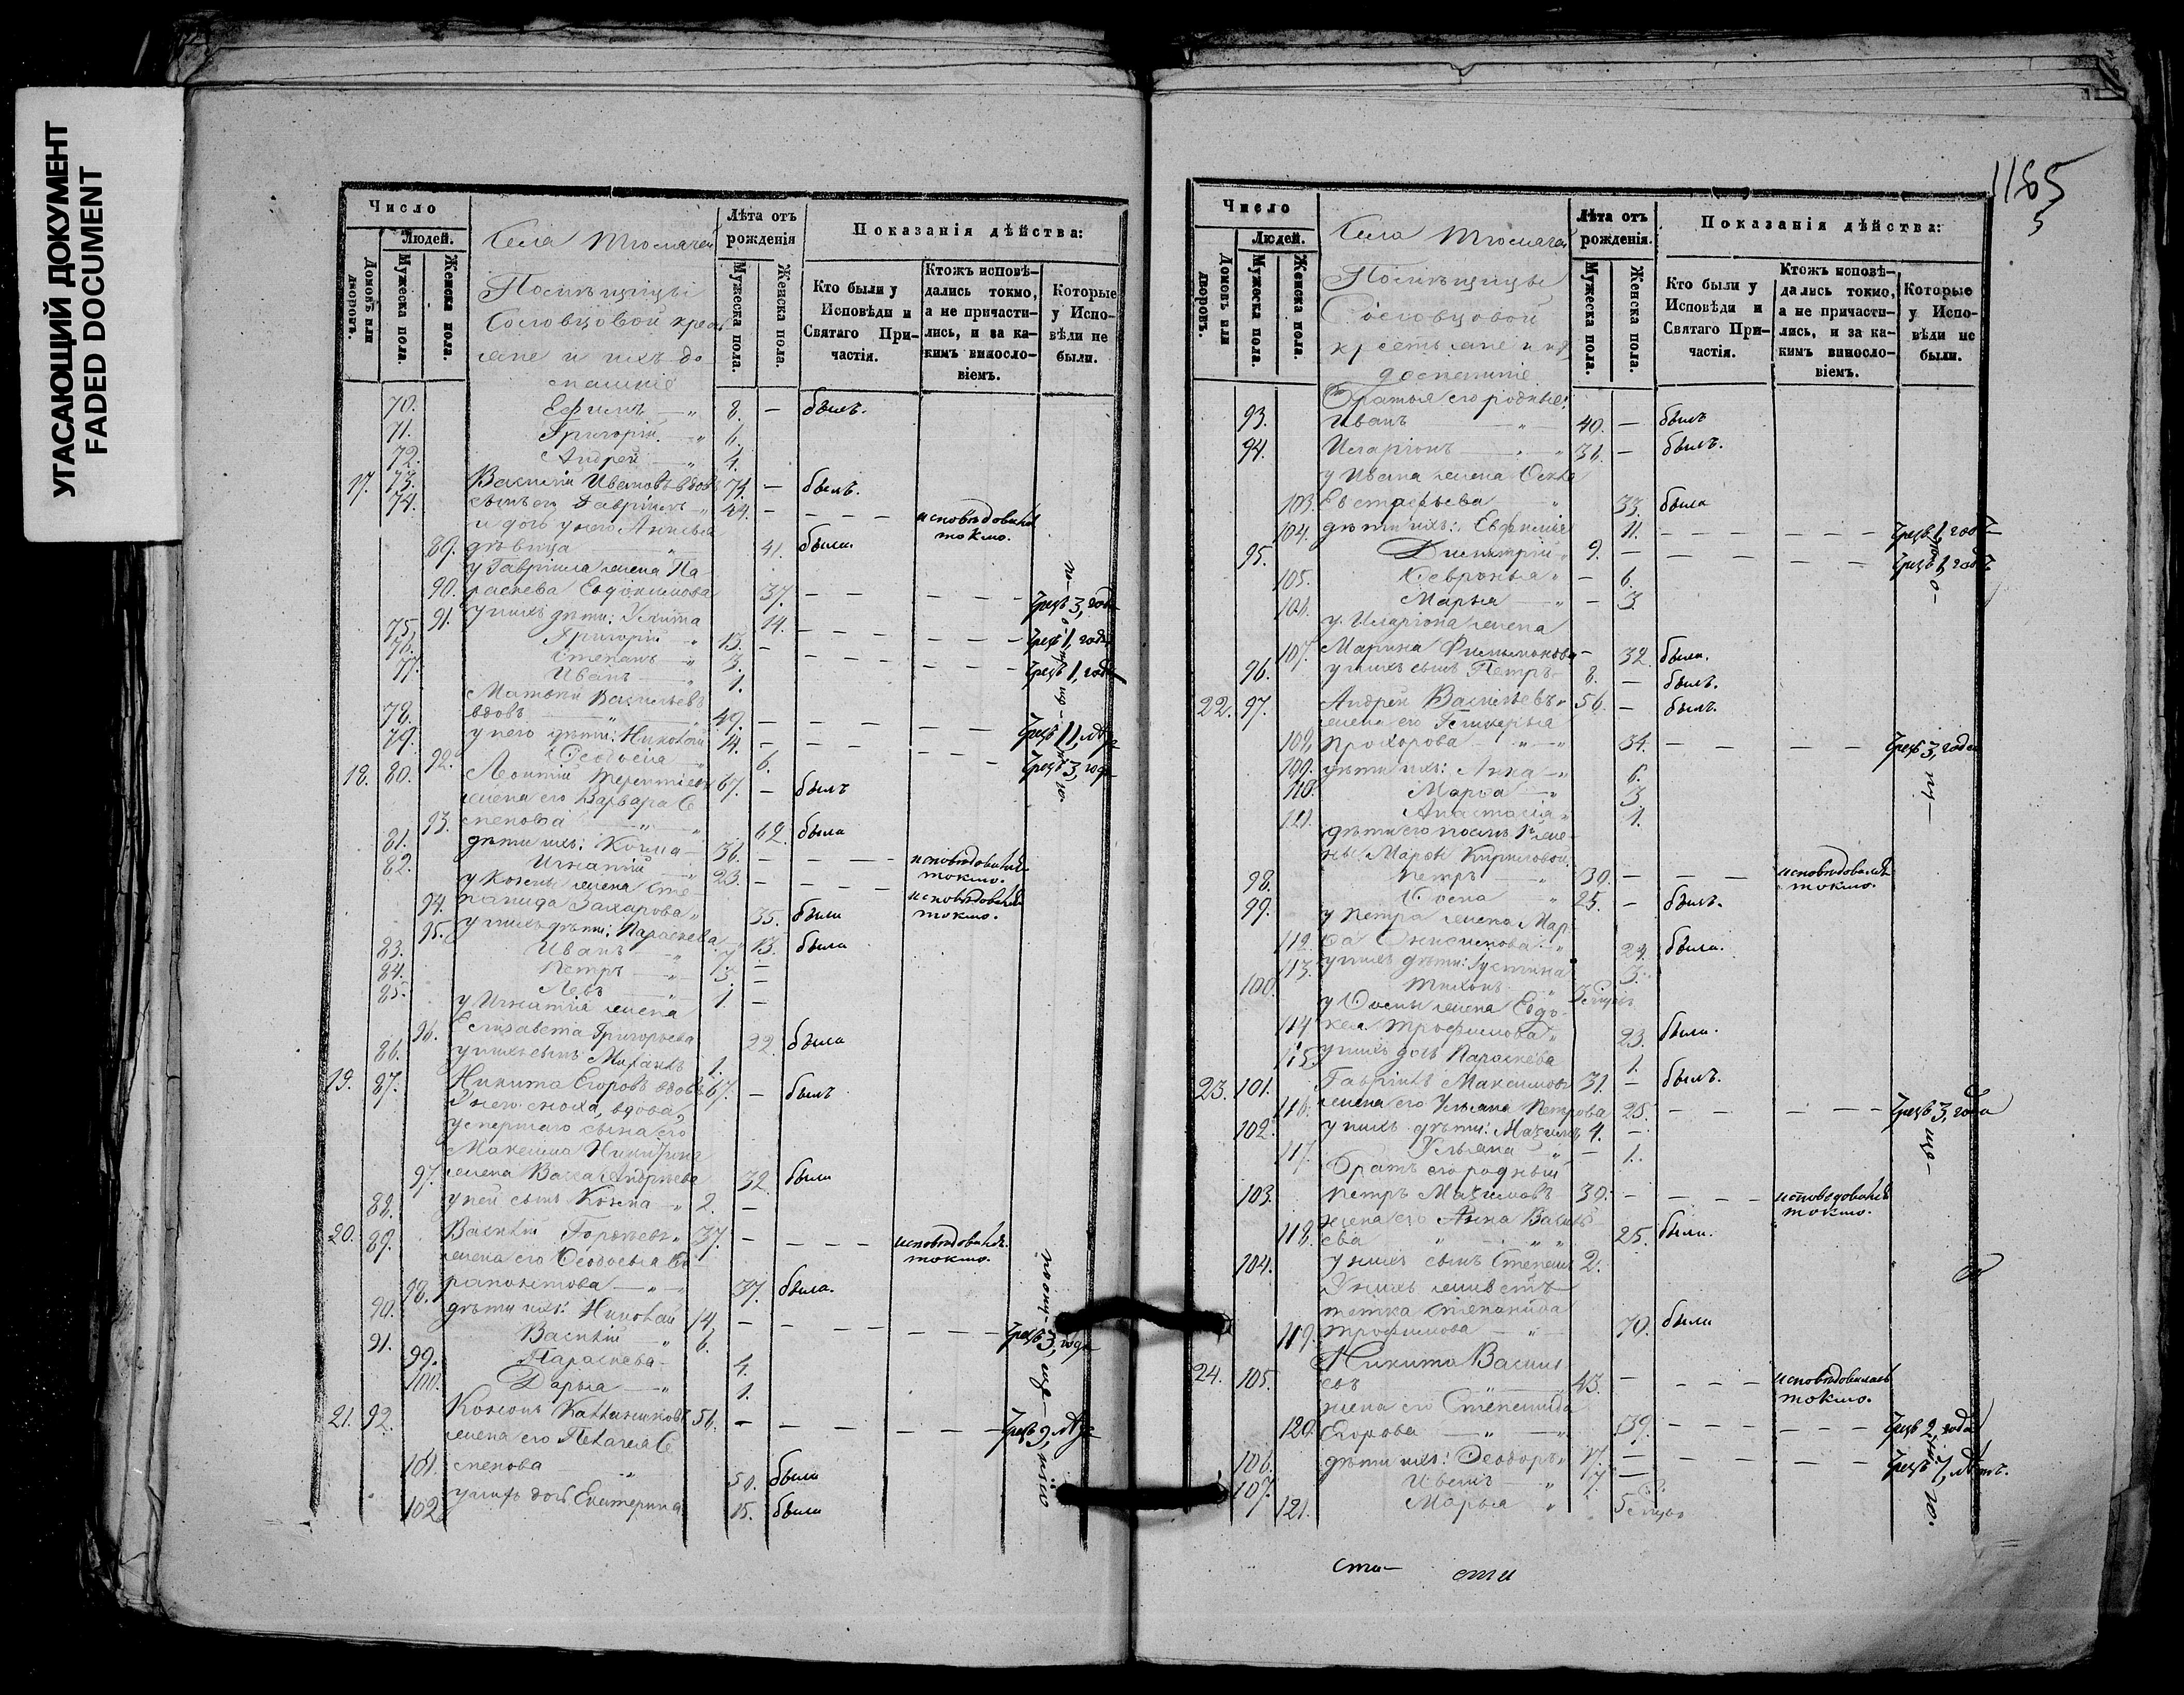 УГАСАЮЩИЙ ДОКУМЕНТ
FADED DOCUMENT
Число
Людей.
Домовъ или дворовъ.
Мужеска пола.
Женска пола.
Села
Помѣщицы
Сословцовой крестьяне и ихъ домашніе
Лѣта отъ рожденія
Мужеска пола.
Женска пола.
Показанія дѣйства:
Кто были у Исповѣди и Святаго Причастія.
Ктожъ исповѣдались токмо, а не причастились, и за какимъ винословіемъ.
Которые у Исповѣди не были.
70. Ефимъ 8. — былъ.
71. Григорій 6.
72. Андрей 4.
17. 73. Василій Ивановъ вдовъ 74. — былъ.
74. сынъ его Гавріилъ 44. — исповѣдовался токмо.
и дочь у него
89. дѣвица 41. была.
у Гавріила жена Па-
90. раскева Евдокимова 37. — чрезъ 3, года
91. у нихъ дѣти: Улита 14.
75. Григорій 13. — чрезъ 1, годъ
76. Степанъ 3. — чрезъ 1, годъ
77. Иванъ 1.
Матвѣй Васильевъ
78. вдовъ 49. —
79. у него дѣти: Николай 14. — чрезъ 11, лѣтъ
92. Ѳеодосія 6. чрезъ 3, года
18. 80. Леонтій Терентіевъ 67. — былъ
жена его Варвара Се
93. менова 62. была
81. дѣти ихъ: Косма 36. — исповѣдовался токмо.
82. Игнатій 23. — исповѣдовался токмо.
у Козмы жена Сте
94. панида Захарова 35. была
95. у нихъ дѣти: Параскева 13. была
83. Иванъ 7 —
84. Петръ 3. —
85. Левъ 1. —
у Игнатія жена
96. Елисавета Григорьева 22. была
86. у нихъ сынъ Михаилъ 1.
19. 87. Никита Егоровъ вдовъ 67. — былъ
У него сноха, вдова,
умершаго сына его
Максима Никитина
97. жена Васса Андреева 32. была
88. у ней сынъ Козма 2. —
20. 89. Василій 37. — исповѣдовался токмо.
жена его Ѳеодосья
98. 37. была.
90. дѣти ихъ: Николай 14. — чрезъ 3, года
91. Василій 6.
99. Параскева 4.
100. Дарья 1.
21. 92. 56. — чрезъ 9, лѣтъ
жена его Пелагея Се
101. менова 50. была
102. у нихъ дочь Екатерина 15. была
1185
5
Число
Людей.
Домовъ или дворовъ.
Мужеска пола.
Женска пола.
Села
Помѣщицы
Сословцовой
крестьяне и ихъ
домашніе
Лѣта отъ рожденія.
Мужеска пола.
Женска пола.
Показанія дѣйства:
Кто были у Исповѣди и Святаго Причастія.
Ктожъ исповѣдались токмо, а не причастились, и за какимъ винословіемъ.
Которые у Исповѣди не были.
Братья его родные:
93. Иванъ 40. — былъ
94. Иларіонъ 31. — былъ.
у Ивана жена
103. Евстафьева 33. была
104. дѣти ихъ: Евфимія 11. — чрезъ 1, годъ
95. Димитрій 9. — чрезъ 1, годъ
105. Февронья — 6.
106. Марья — 3.
у Иларіона жена
107. Марина Филимонова — 32. была.
96. у нихъ сынъ Петръ 8. — былъ.
22. 97. Андрей Васильевъ 56. — былъ.
жена его Гликерья
108. Прохорова 34. — чрезъ 3, года
109. дѣти ихъ: Анна 6.
110. Марѳа 3.
111. Анастасія 1.
дѣти его
Марѳы Кириловой
98. Петръ 30. — исповѣдовался токмо.
99. Іосифъ 25. — былъ.
у Петра жена Мар
112. ѳа 24. была.
113. у нихъ дѣти: Іустина 3.
100. Тихонъ
жена Евдо-
114 кея Трофимова 23. была.
115 у нихъ дочь Параскева 1.
23. 101. Гавріилъ Максимовъ 31. — былъ.
116. жена его Ульяна Петрова 28. — чрезъ 3, года
102. у нихъ дѣти: Максимъ 4. —
117. Ульяна — 1.
Братъ его родный
103. Петръ Максимовъ 30. — исповѣдовался токмо.
жена его Анна Василь
118. ева 25. была.
104. у нихъ сынъ Степанъ 2.
У нихъ живетъ
тетка Степанида
119. Трофимова 70. была
24. 105. Никита Василь
евъ 43. — исповѣдовался токмо.
жена его Степанида
120. Егорова 39. — чрезъ 2, года
106. дѣти ихъ: Ѳеодоръ 17. — чрезъ 7, лѣтъ.
107. Иванъ 7. —
121. Марья